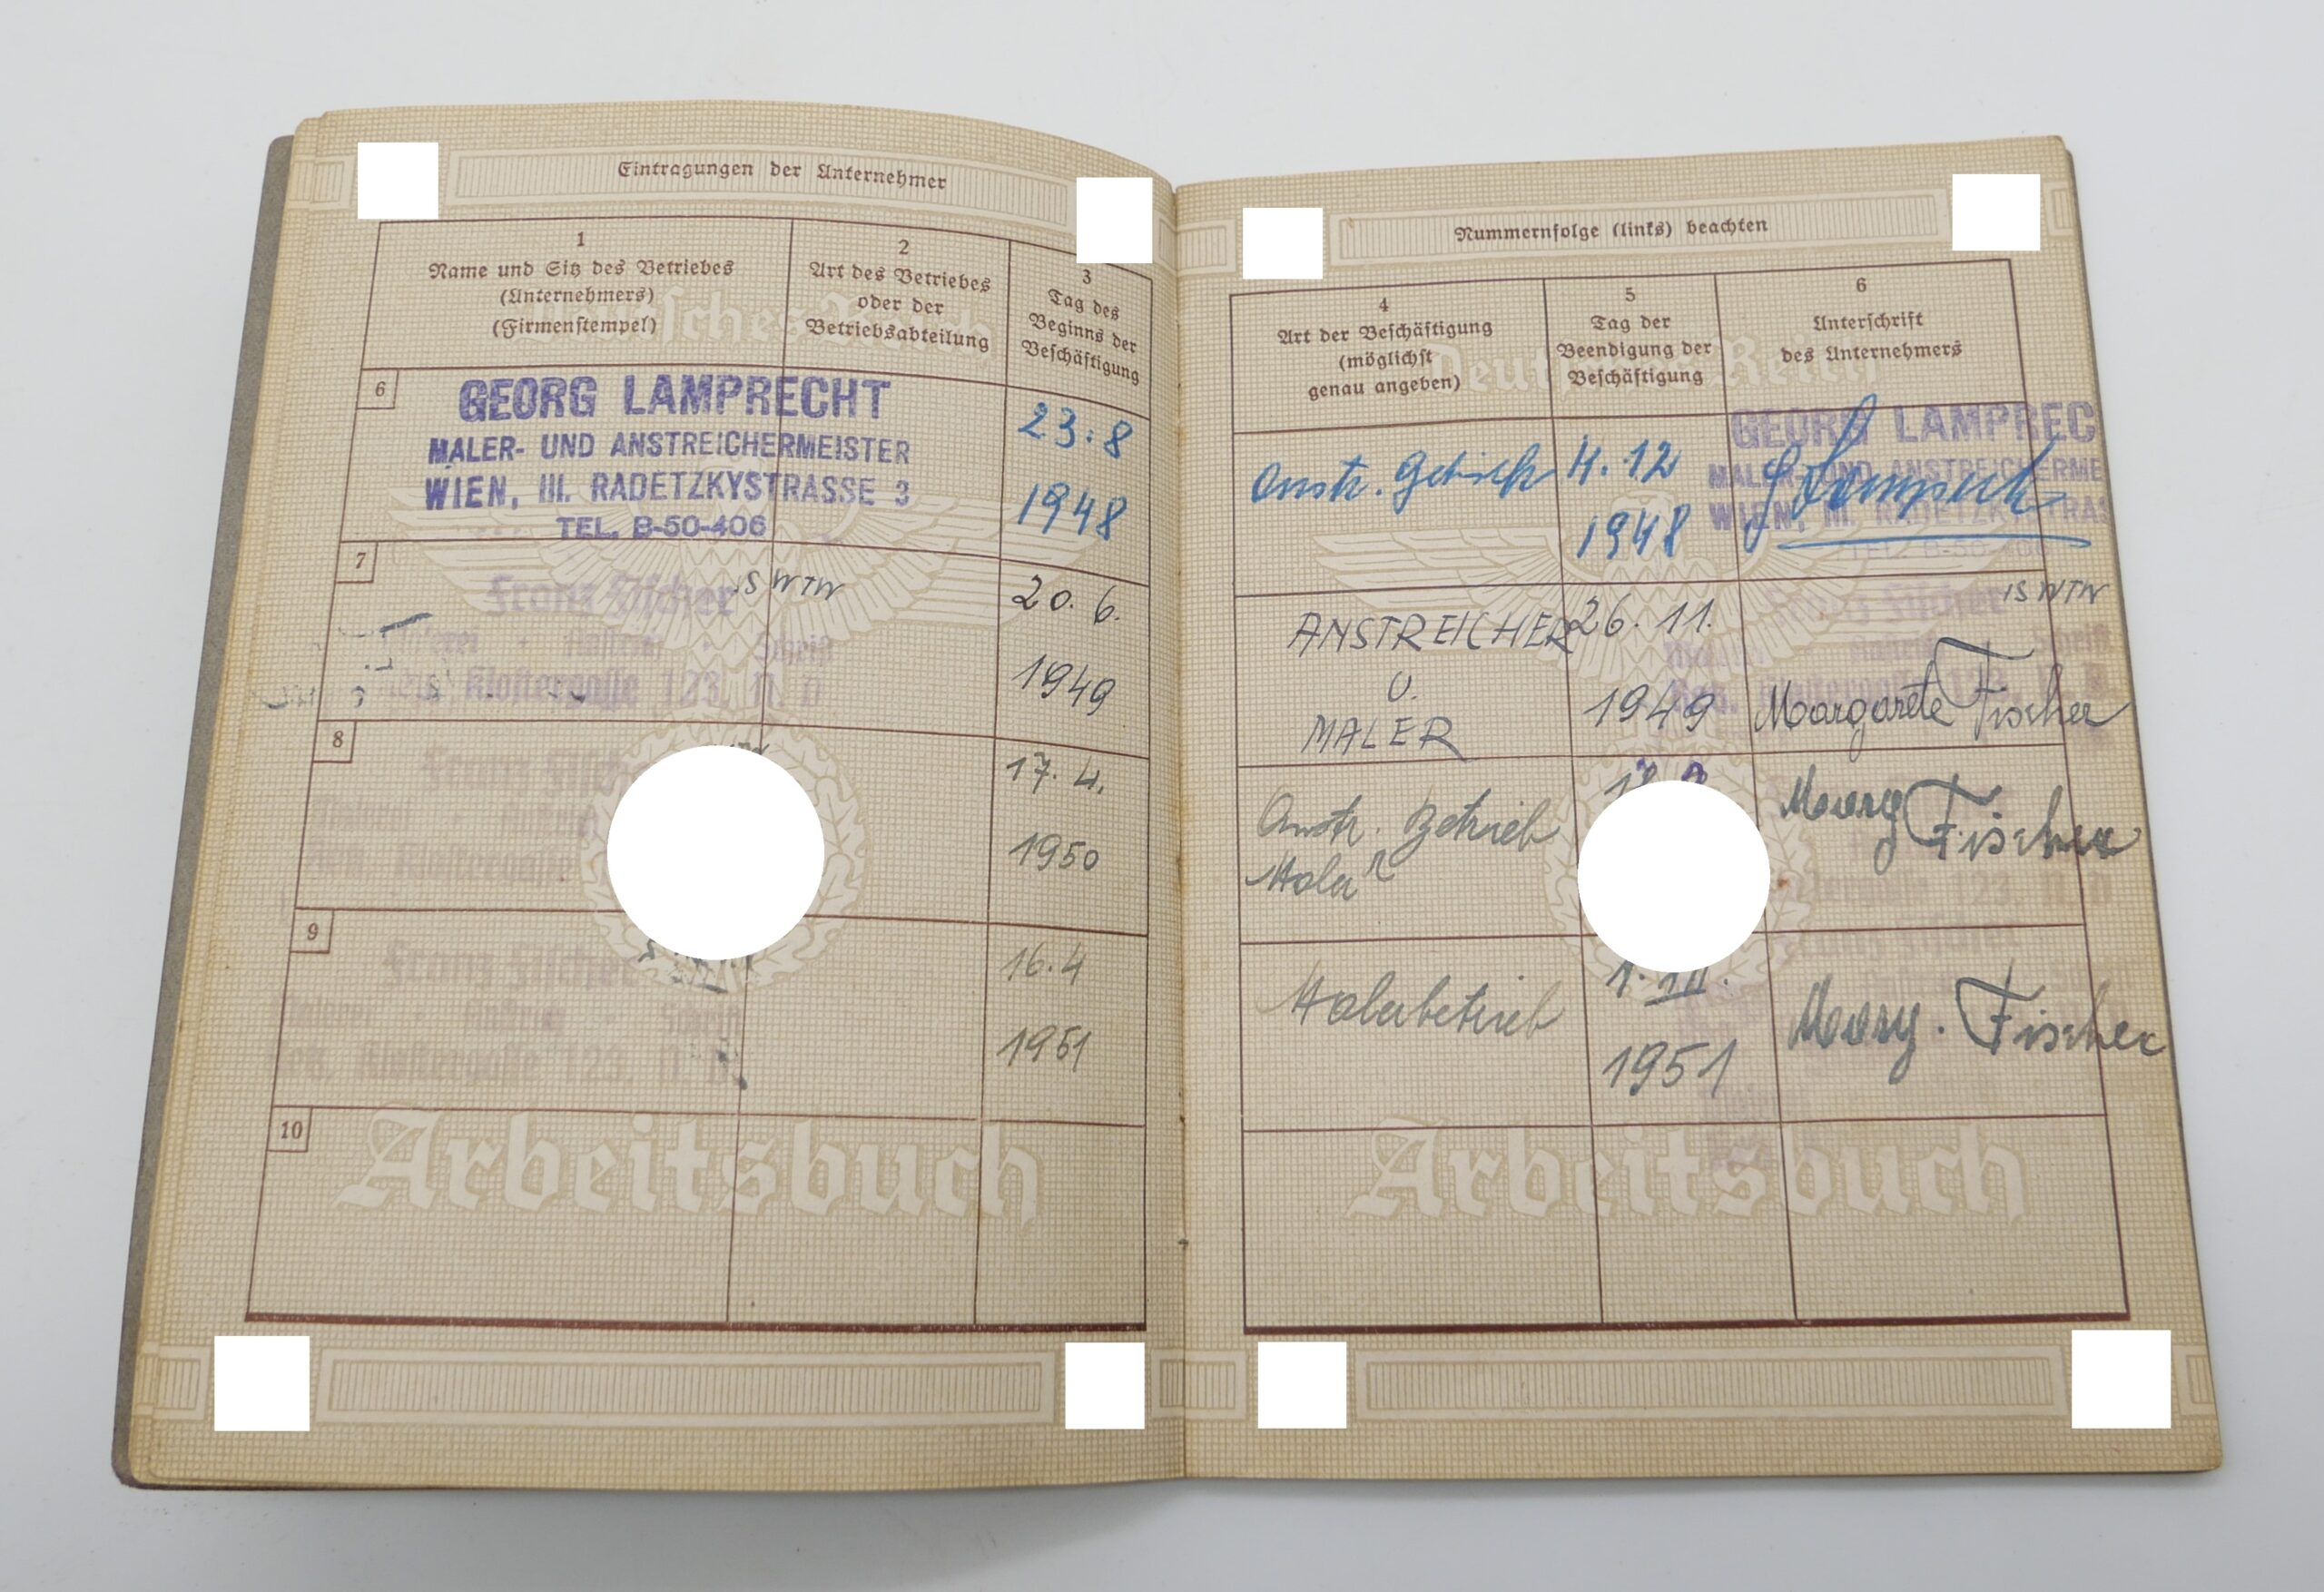 Eintragungen der Unternehmer
1
Name und Sitz des Betriebes
(Unternehmers)
(Firmenstempel)
2
Art des Betriebes
oder der
Betriebsabteilung
3
Tag des
Beginns der
Beschäftigung
6
GEORG LAMPRECHT
MALER- UND ANSTREICHERMEISTER
WIEN, III. RADETZKYSTRASSE 3
TEL. B-50-406
23.8
1948
7
Franz Fischer
Schrift
Klostergasse 123. N. D.
20. 6.
1949
8
Franz
Klostergasse
17. 4.
1950
9
Franz Fischer
Klostergasse 123. N. D.
16.4
1951
10
Arbeitsbuch
Nummernfolge (links) beachten
4
Art der Beschäftigung
(möglichst
genau angeben)
5
Tag der
Beendigung der
Beschäftigung
6
Unterschrift
des Unternehmers
Deutsches Reich
Anstr.
4.12
1948
GEORG LAMPREC
MALER- UND ANSTREICHERME
WIEN, III. RADETZKYSTRAS
ANSTREICHER
U.
MALER
26. 11.
1949
Margarete Fischer
Anstr. Betrieb
Maler
Marg Fischer
Malerbetrieb
1951
Marg. Fischer
Arbeitsbuch